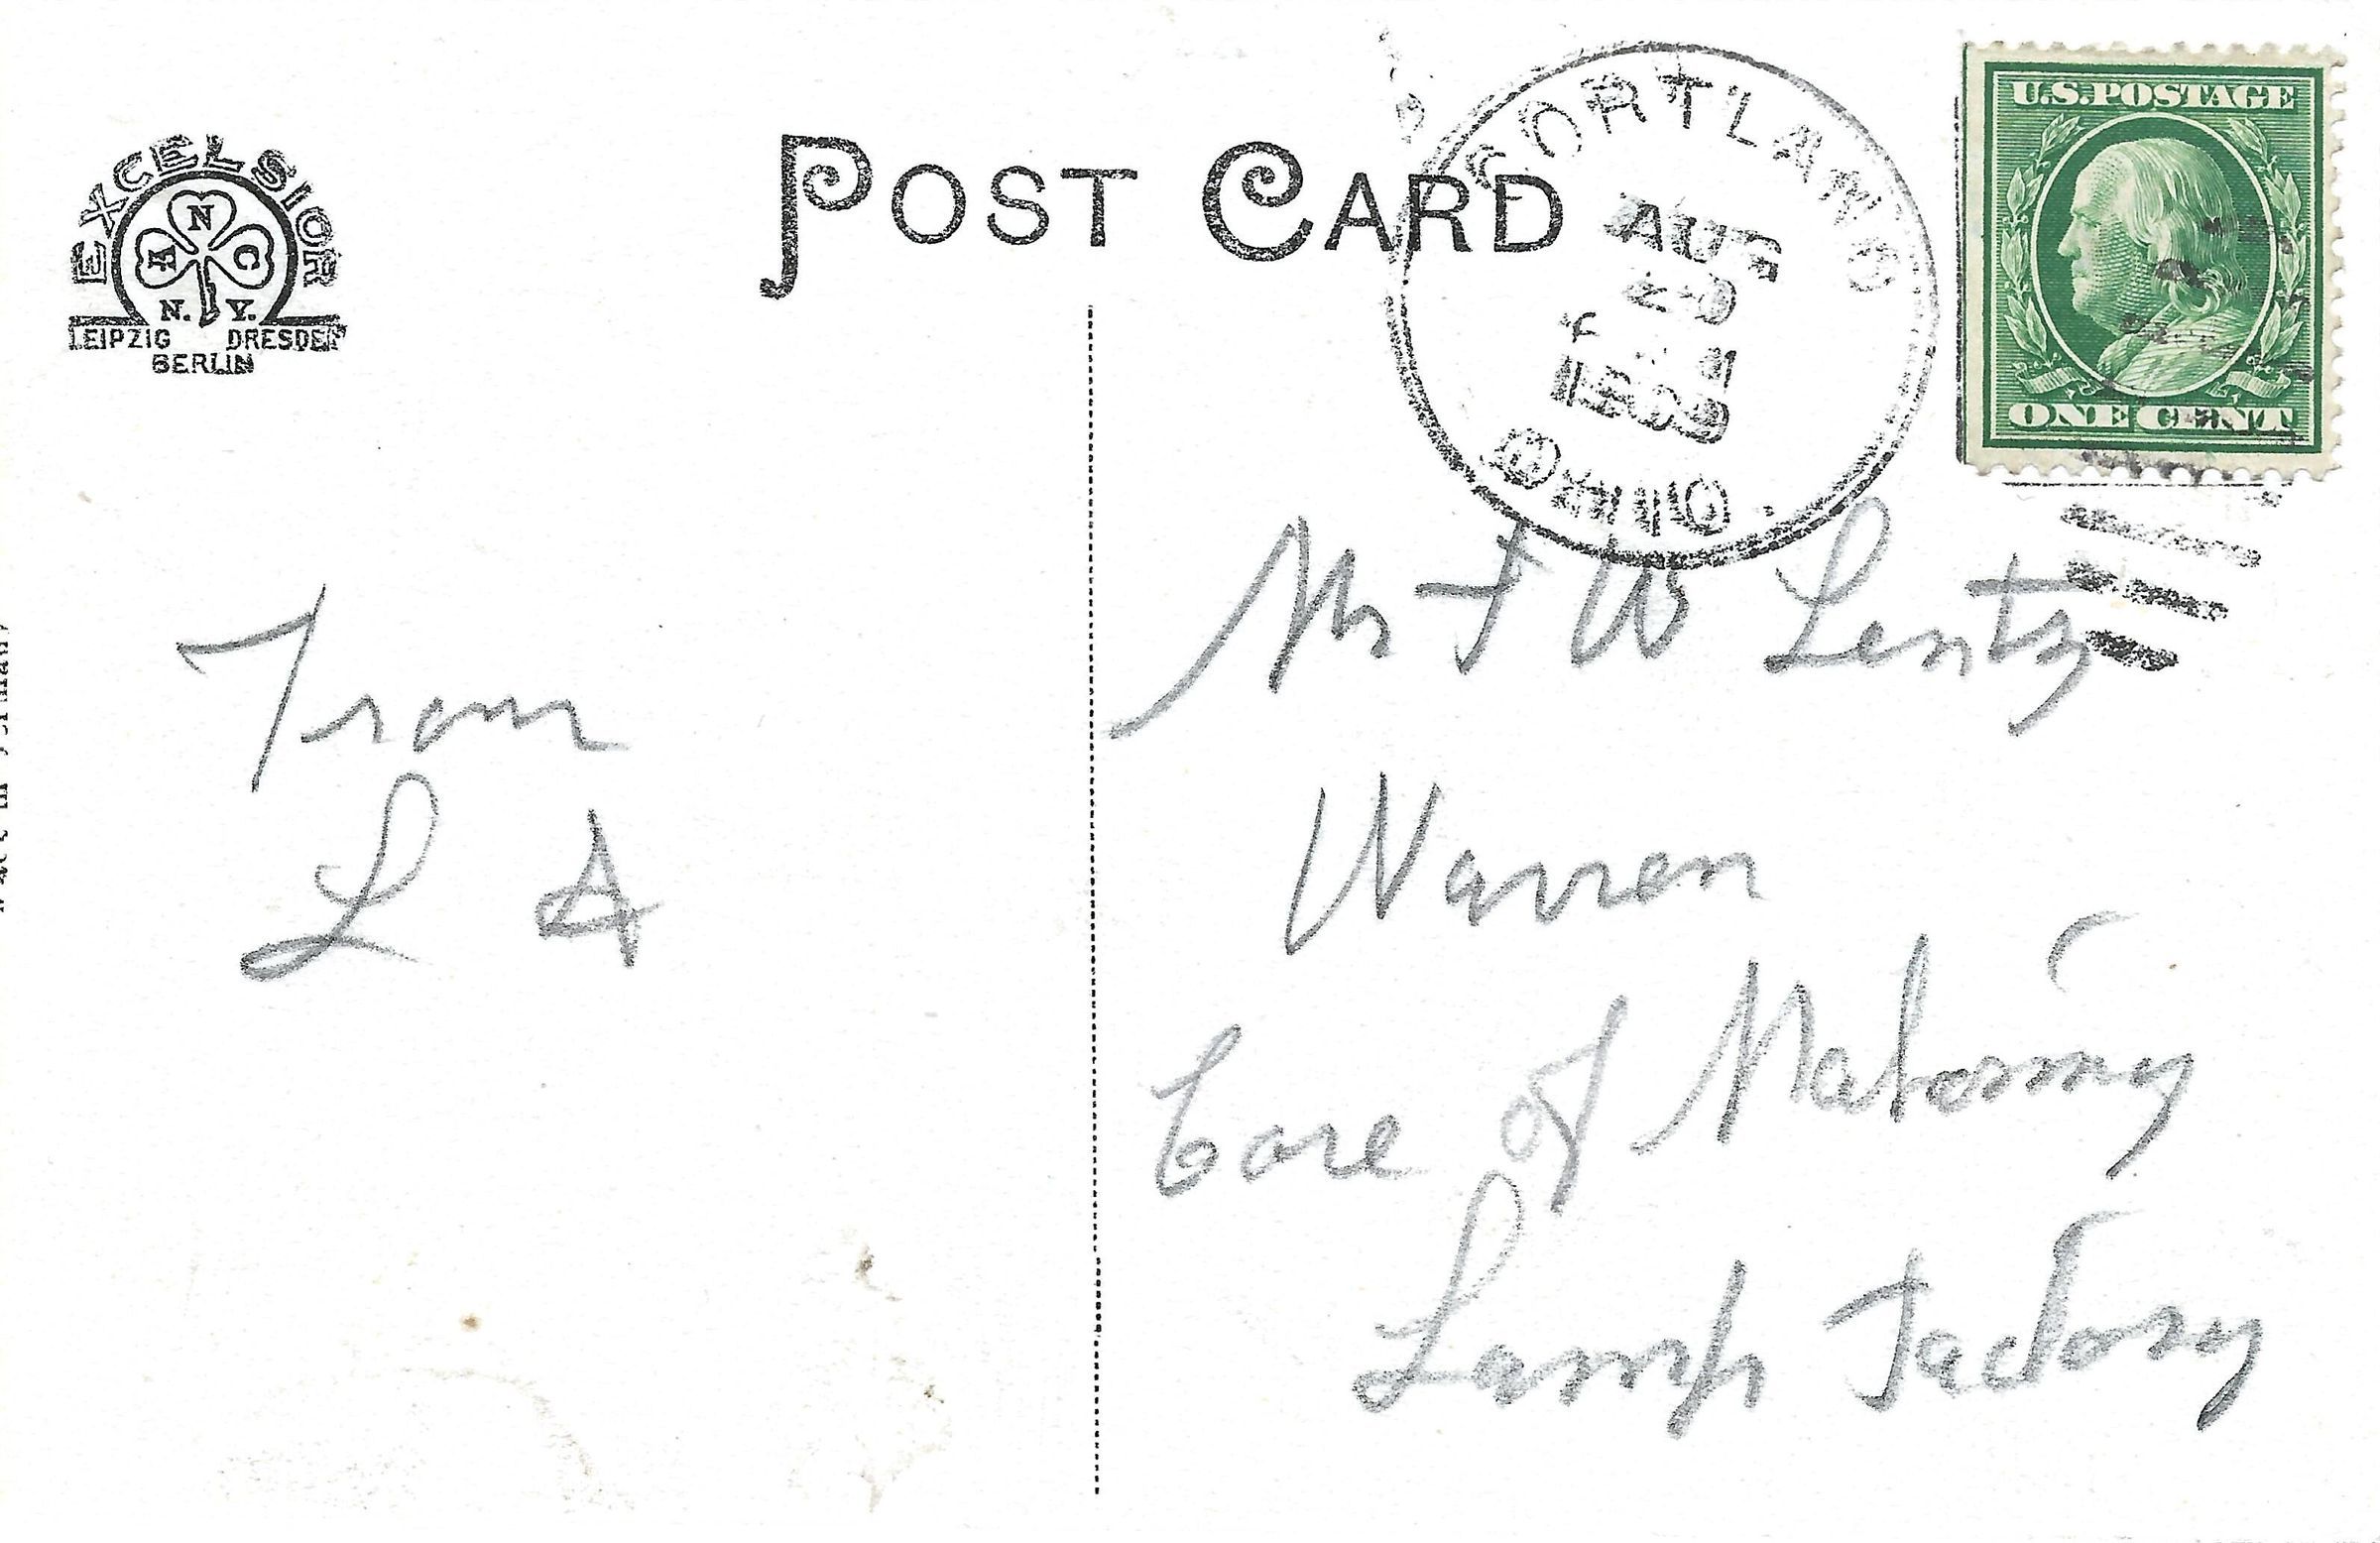 EXCELSIOR
ANC
N. Y.
LEIPZIG DRESDEN
BERLIN
POST CARD
CORTLAND
AUG
1909
OHIO
U.S. POSTAGE
ONE CENT
From
L A
Mr F W Lentz
Warren
Care of Mahoning
Lamp Factory